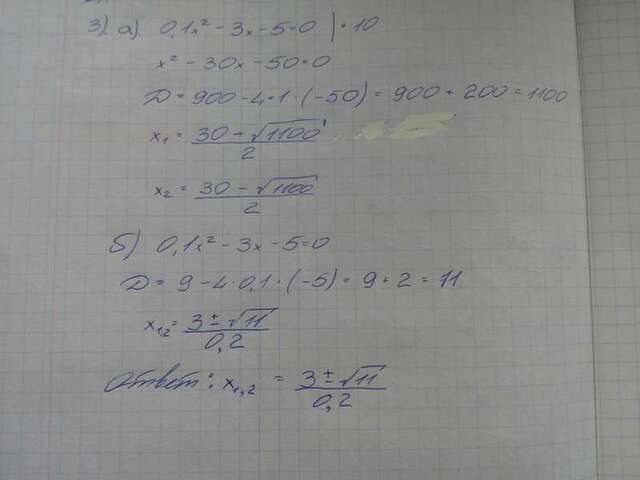 3) а) 0,1x² - 3x - 5 = 0 | · 10
x² - 30x - 50 = 0
D = 900 - 4 · 1 · (-50) = 900 + 200 = 1100
x₁ = (30 + √1100) / 2
x₂ = (30 - √1100) / 2
б) 0,1x² - 3x - 5 = 0
D = 9 - 4 · 0,1 · (-5) = 9 + 2 = 11
x₁,₂ = (3 ± √11) / 0,2
Ответ: x₁,₂ = (3 ± √11) / 0,2